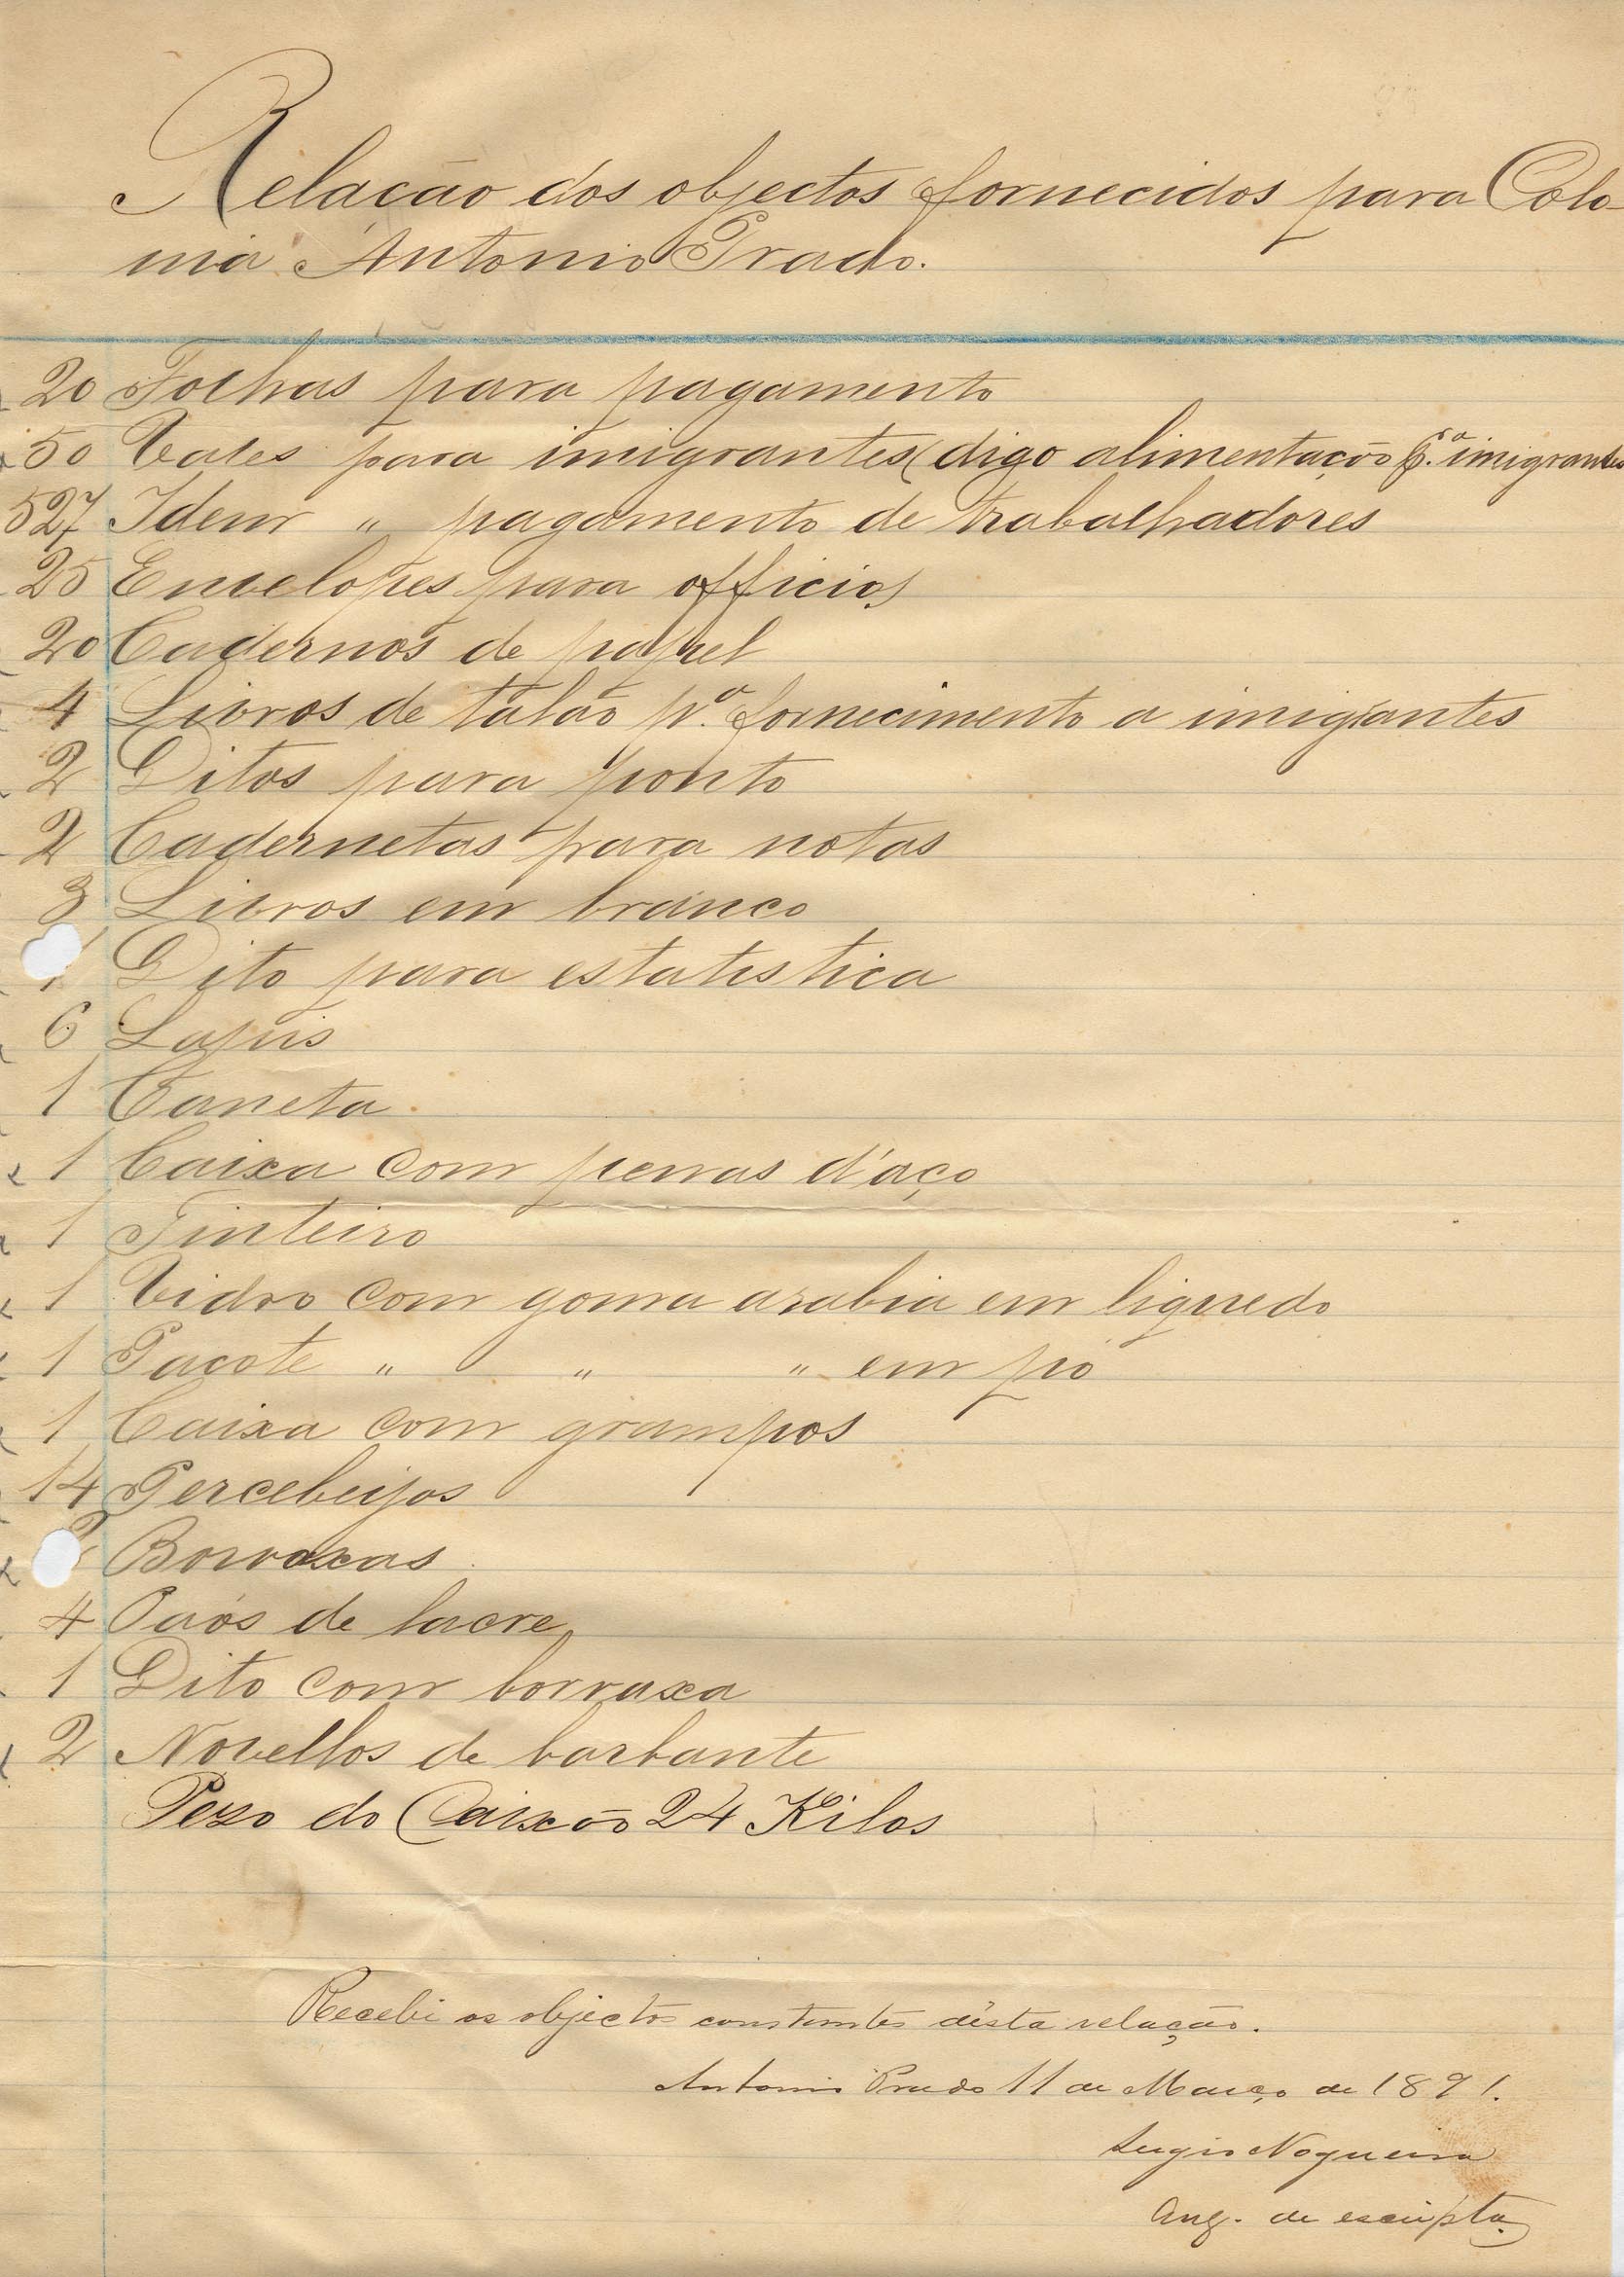 Relação dos objectos fornecidos para Colo-
nia Antonio Prado.
20 Folhas para pagamento
50 Vales para imigrantes (digo alimentação p.ra imigrantes
527 Idem " pagamento de trabalhadores
25 Envelopes para officios
20 Cadernos de papel
4 Livros de talão p.a fornecimento a imigrantes
2 Ditos para ponto
2 Cadernetas para notas
3 Livros em branco
1 Dito para estatistica
6 Lapis
1 Caneta
1 Caixa com pennas d'aço
1 Tinteiro
1 Vidro com goma arabia em liquedo
1 Pacote " " " em pó
1 Caixa com grampos
14 Percebeijos
Borraxas
4 Páos de lacre
1 Dito com borraxa
2 Novellos de barbante
Pezo do Caixão 24 Kilos
Recebi os objectos constantes désta relação.
Antonio Prado 11 de Março de 1891.
Nogueira
Aux. de escripta